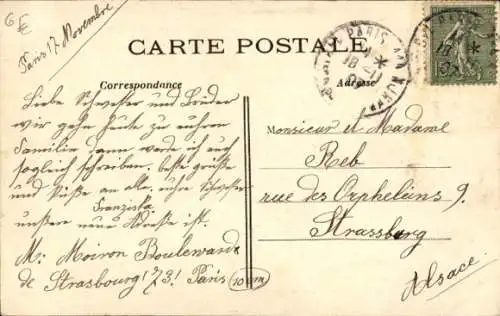 6€
Paris 17 Novembre
CARTE POSTALE
Correspondance
Adresse
PARIS
18 -11
Liebe Schwester und Brüder
wir gehn heute zu euhren
Familien dann werde ich euch
sogleich schreiben. beste grüße
und Küße an alle. euhre Schwester
Franziska
unßere neue Adreße ist.
Mr Moiron Bouleward
de Strasbourg 73! Paris
10 em
Monsieur et Madame
Reb
rue des Orphelins 9.
Strassburg
Alsace